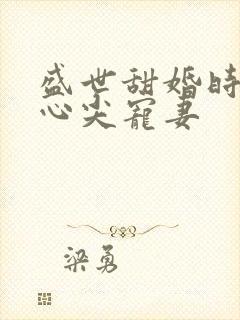 盛世甜婚时
心尖宠妻
梁勇